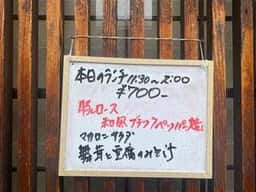 本日のランチ11:30～2:00
¥700-
豚ロース
和風ブラックペッパー焼
マカロニサラダ
舞茸と豆腐のみそ汁